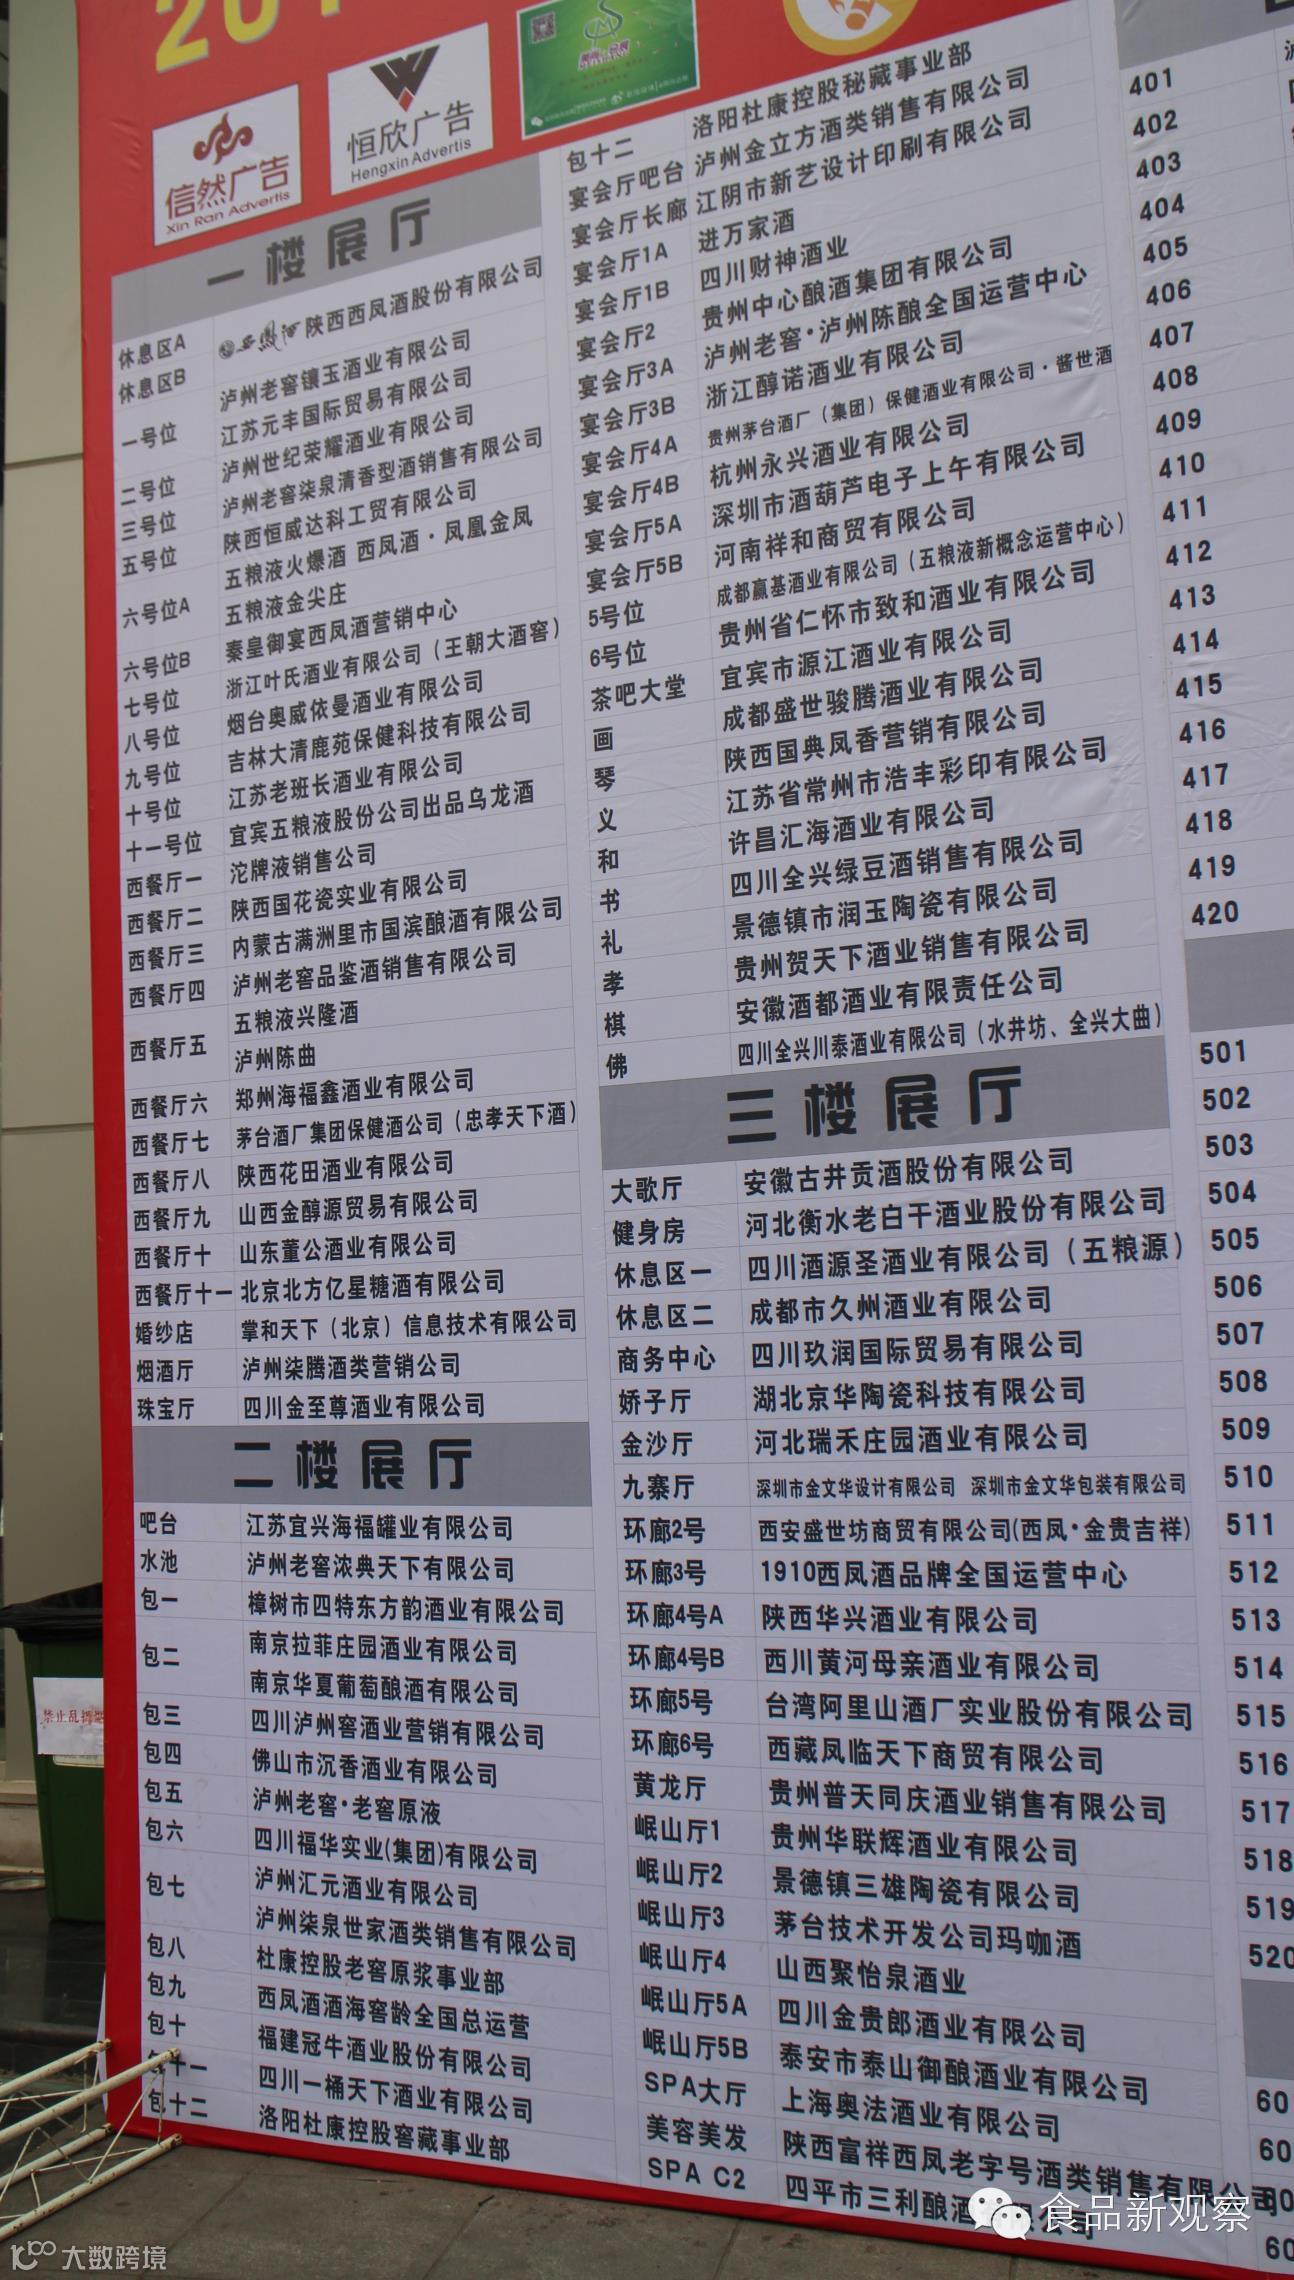 201
信然广告
Xin Ran Advertis
恒欣广告
Hengxin Advertis
一楼展厅
休息区A 陕西西凤酒股份有限公司
休息区B 泸州老窖镶玉酒业有限公司
一号位 江苏元丰国际贸易有限公司
泸州世纪荣耀酒业有限公司
二号位 泸州老窖柒泉清香型酒销售有限公司
三号位 陕西恒威达科工贸有限公司
五号位 五粮液火爆酒 西凤酒·凤凰金凤
六号位A 五粮液金尖庄
秦皇御宴西凤酒营销中心
六号位B 浙江叶氏酒业有限公司（王朝大酒窖）
七号位 烟台奥威依曼酒业有限公司
八号位 吉林大清鹿苑保健科技有限公司
九号位 江苏老班长酒业有限公司
十号位 宜宾五粮液股份公司出品乌龙酒
十一号位 沱牌液销售公司
西餐厅一 陕西国花瓷实业有限公司
西餐厅二 内蒙古满洲里市国滨酿酒有限公司
西餐厅三 泸州老窖品鉴酒销售有限公司
西餐厅四 五粮液兴隆酒
西餐厅五 泸州陈曲
西餐厅六 郑州海福鑫酒业有限公司
西餐厅七 茅台酒厂集团保健酒公司（忠孝天下酒）
西餐厅八 陕西花田酒业有限公司
西餐厅九 山西金醇源贸易有限公司
西餐厅十 山东董公酒业有限公司
西餐厅十一 北京北方亿星糖酒有限公司
婚纱店 掌和天下（北京）信息技术有限公司
烟酒厅 泸州柒腾酒类营销公司
珠宝厅 四川金至尊酒业有限公司
二楼展厅
吧台 江苏宜兴海福罐业有限公司
水池 泸州老窖浓典天下有限公司
包一 樟树市四特东方韵酒业有限公司
包二 南京拉菲庄园酒业有限公司
南京华夏葡萄酿酒有限公司
包三 四川泸州窖酒业营销有限公司
包四 佛山市沉香酒业有限公司
包五 泸州老窖·老窖原液
包六 四川福华实业(集团)有限公司
包七 泸州汇元酒业有限公司
泸州柒泉世家酒类销售有限公司
包八 杜康控股老窖原浆事业部
包九 西凤酒酒海窖龄全国总运营
包十 福建冠牛酒业股份有限公司
包十一 四川一桶天下酒业有限公司
包十二 洛阳杜康控股窖藏事业部
包十二 洛阳杜康控股秘藏事业部
宴会厅吧台 泸州金立方酒类销售有限公司
宴会厅长廊 江阴市新艺设计印刷有限公司
宴会厅1A 进万家酒
宴会厅1B 四川财神酒业
宴会厅2 贵州中心酿酒集团有限公司
宴会厅3A 泸州老窖·泸州陈酿全国运营中心
宴会厅3B 浙江醇诺酒业有限公司
宴会厅4A 贵州茅台酒厂（集团）保健酒业有限公司·酱世酒
宴会厅4B 杭州永兴酒业有限公司
宴会厅5A 深圳市酒葫芦电子上午有限公司
宴会厅5B 河南祥和商贸有限公司
5号位 成都赢基酒业有限公司（五粮液新概念运营中心）
6号位 贵州省仁怀市致和酒业有限公司
茶吧大堂 宜宾市源江酒业有限公司
画 成都盛世骏腾酒业有限公司
琴 陕西国典凤香营销有限公司
义 江苏省常州市浩丰彩印有限公司
和 许昌汇海酒业有限公司
书 四川全兴绿豆酒销售有限公司
礼 景德镇市润玉陶瓷有限公司
孝 贵州贺天下酒业销售有限公司
棋 安徽酒都酒业有限责任公司
佛 四川全兴川泰酒业有限公司（水井坊、全兴大曲）
三楼展厅
大歌厅 安徽古井贡酒股份有限公司
健身房 河北衡水老白干酒业股份有限公司
休息区一 四川酒源圣酒业有限公司（五粮源）
休息区二 成都市久州酒业有限公司
商务中心 四川玖润国际贸易有限公司
娇子厅 湖北京华陶瓷科技有限公司
金沙厅 河北瑞禾庄园酒业有限公司
九寨厅 深圳市金文华设计有限公司 深圳市金文华包装有限公司
环廊2号 西安盛世坊商贸有限公司(西凤·金贵吉祥)
环廊3号 1910西凤酒品牌全国运营中心
环廊4号A 陕西华兴酒业有限公司
环廊4号B 西川黄河母亲酒业有限公司
环廊5号 台湾阿里山酒厂实业股份有限公司
环廊6号 西藏凤临天下商贸有限公司
黄龙厅 贵州普天同庆酒业销售有限公司
岷山厅1 贵州华联辉酒业有限公司
岷山厅2 景德镇三雄陶瓷有限公司
岷山厅3 茅台技术开发公司玛咖酒
岷山厅4 山西聚怡泉酒业
岷山厅5A 四川金贵郎酒业有限公司
岷山厅5B 泰安市泰山御酿酒业有限公司
SPA大厅 上海奥法酒业有限公司
美容美发 陕西富祥西凤老字号酒类销售有限公司
SPA C2 四平市三利酿酒有限公司
401
402
403
404
405
406
407
408
409
410
411
412
413
414
415
416
417
418
419
420
501
502
503
504
505
506
507
508
509
510
511
512
513
514
515
516
517
518
519
520
60
60
60
60
禁止乱扔
食品新观察
大数跨境